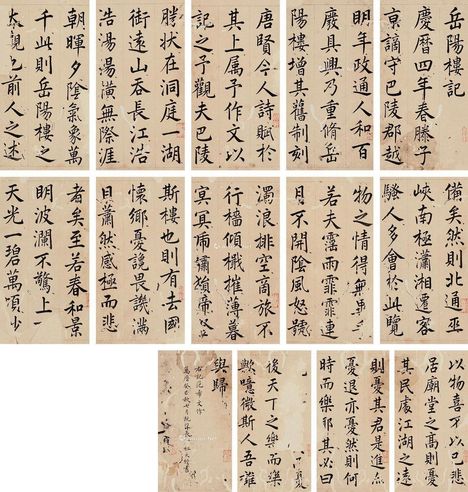 岳陽樓記
慶曆四年春滕子
京謫守巴陵郡越
明年政通人和百
廢具興乃重脩岳
陽樓增其舊制刻
唐賢今人詩賦於
其上属予作文以
記之予觀夫巴陵
勝状在洞庭一湖
銜遠山吞長江浩
浩湯湯潢無際涯
朝暉夕陰氣象萬
千此則岳陽樓之
大觀也前人之述
備矣然則北通巫
峽南極瀟湘遷客
騷人多會於此覽
物之情得無異乎
若夫霪雨霏霏連
月不開陰風怒號
濁浪排空商旅不
行檣傾檝摧薄暮
冥冥虎嘯猿啼
斯樓也則有去國
懷鄉憂讒畏譏滿
目蕭然感極而悲
者矣至若春和景
明波瀾不驚上
天光一碧萬頃少
以物喜不以己悲
居廟堂之高則憂
其民處江湖之遠
則憂其君是進亦
憂退亦憂然則何
時而樂耶其必曰
憂
後天下之樂而樂
歟噫微斯人吾誰
與歸
右記范希文作